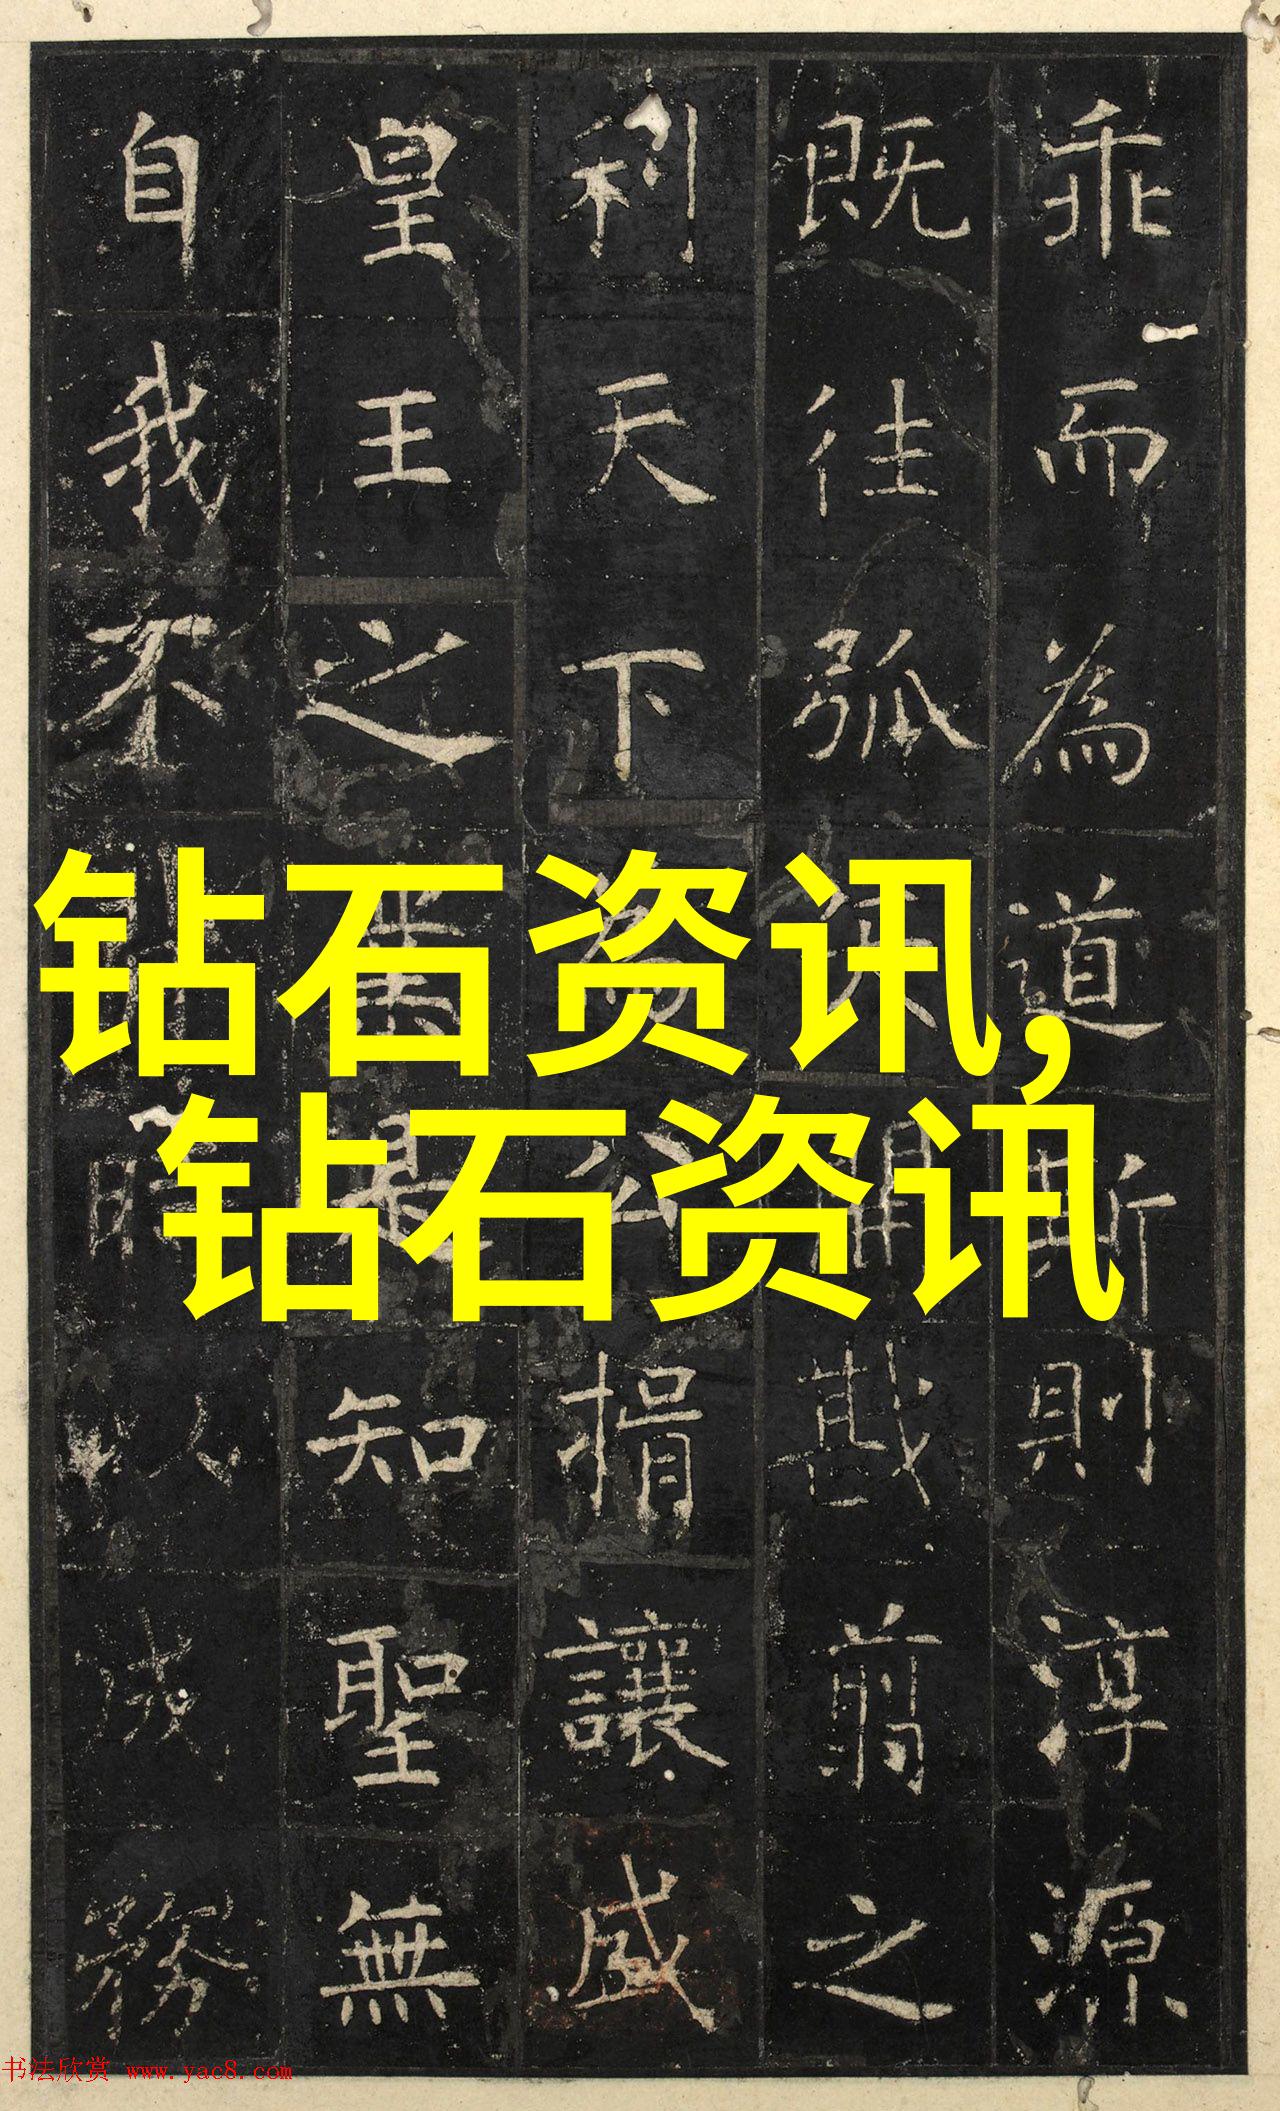 乖而為道斯則淳源
既往弧開戡翦之
利天下為公捐讓盛
皇王之是知聖無
自我不時以成務
钻石资讯,
钻石资讯
书法欣赏 www.yac8.com